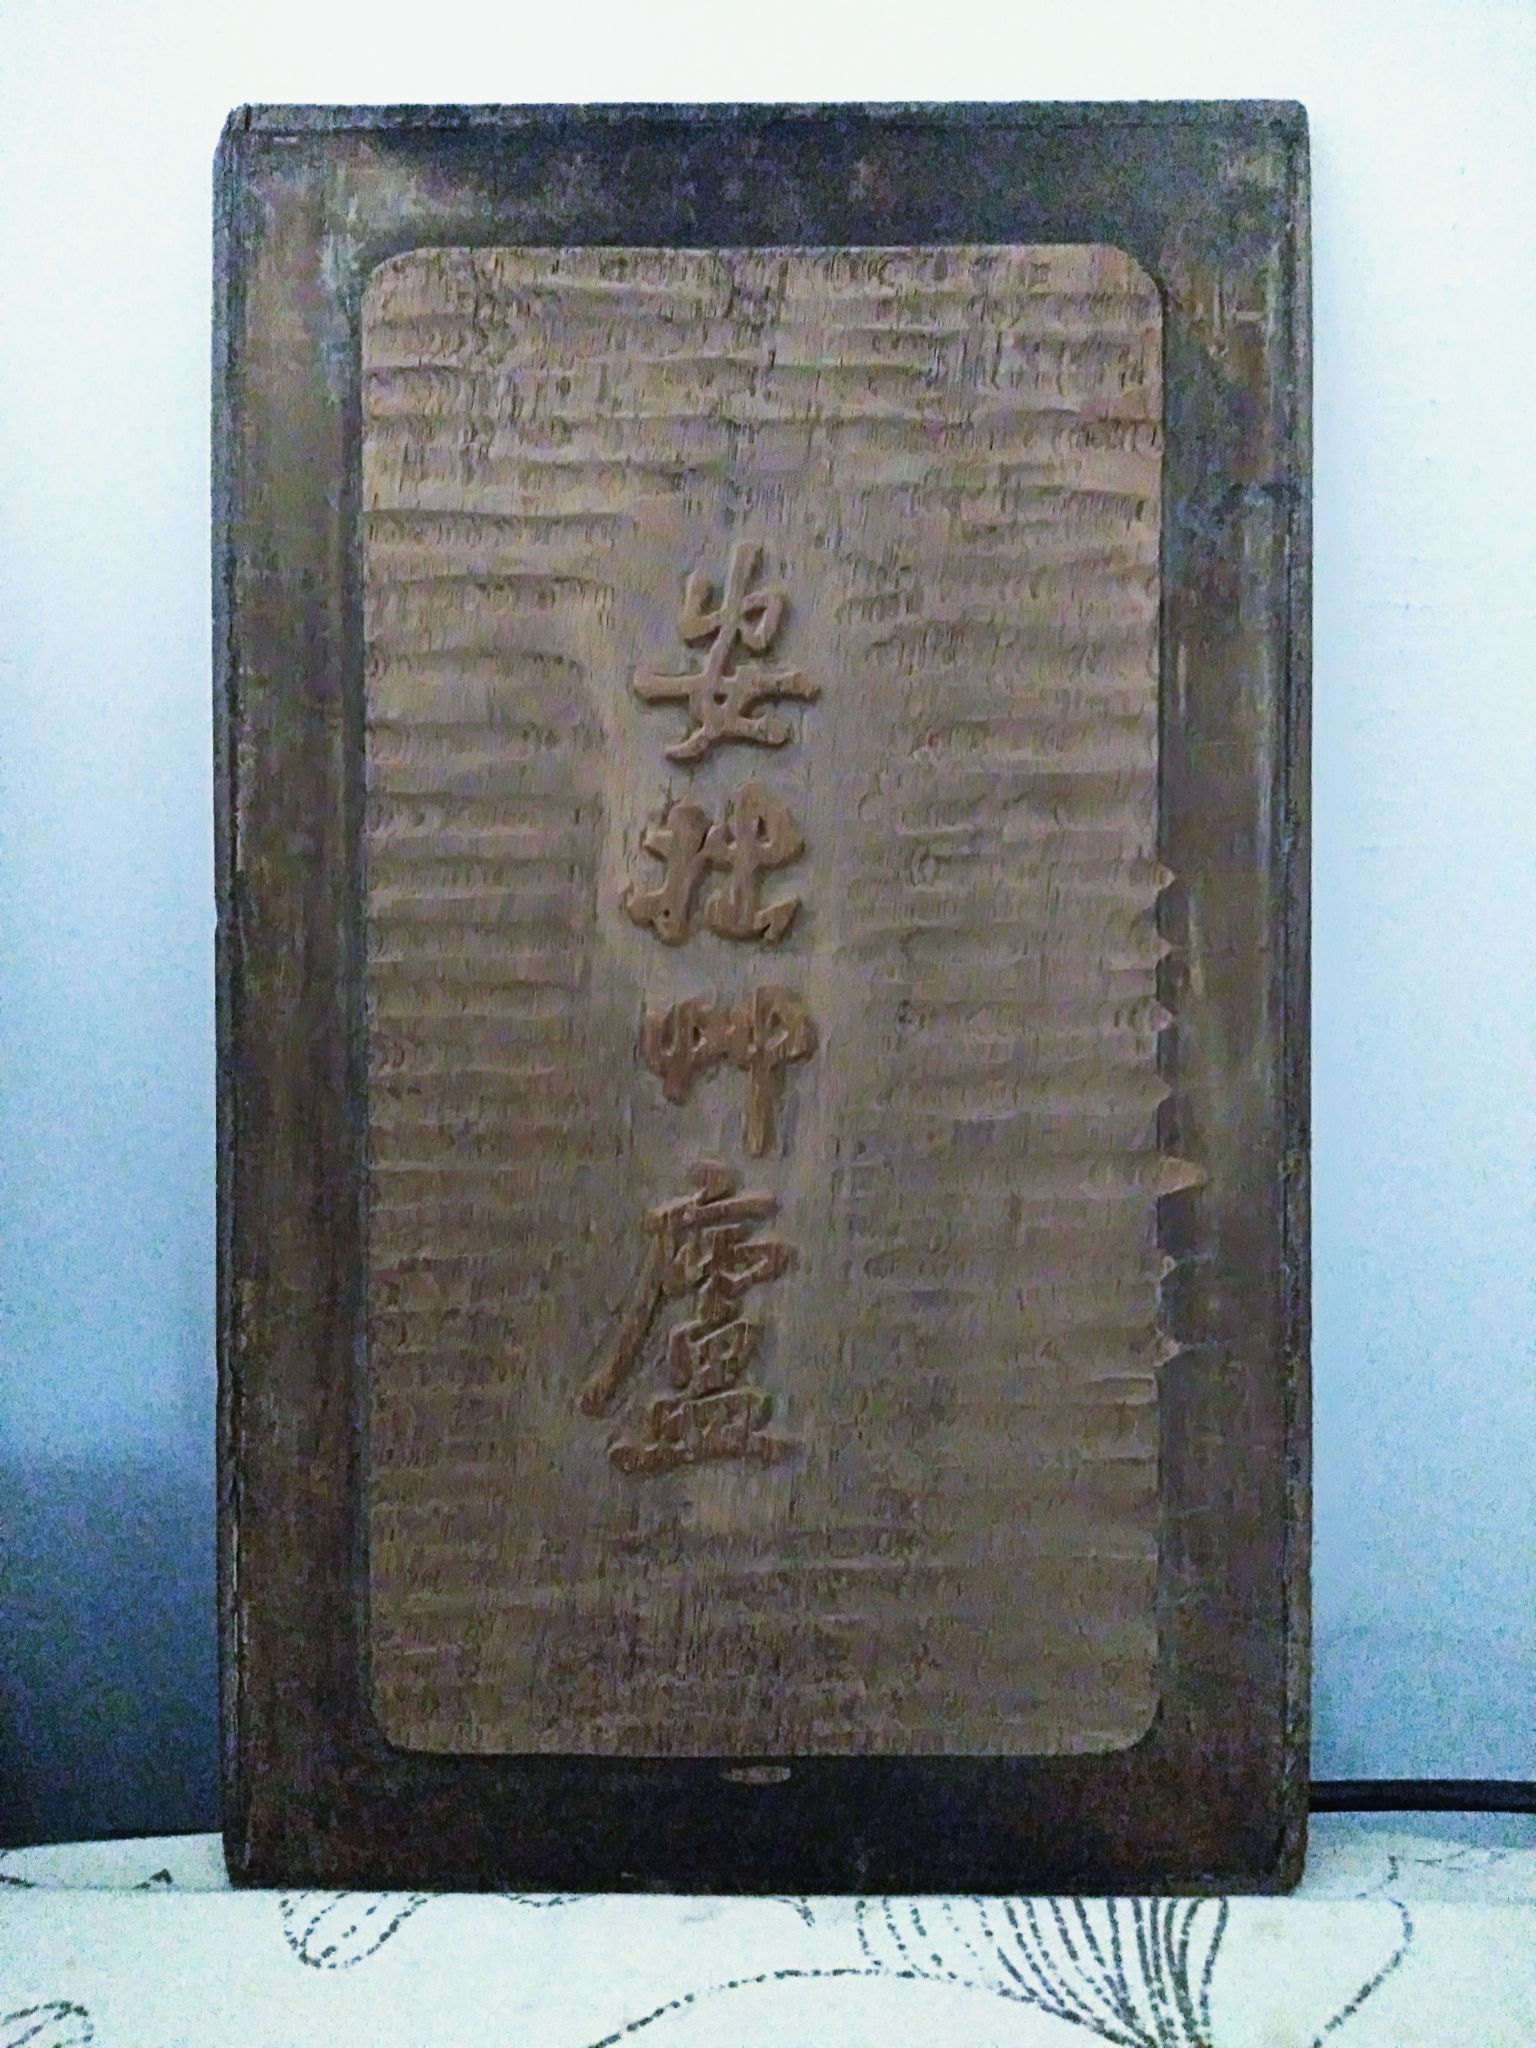 安拙艸廬